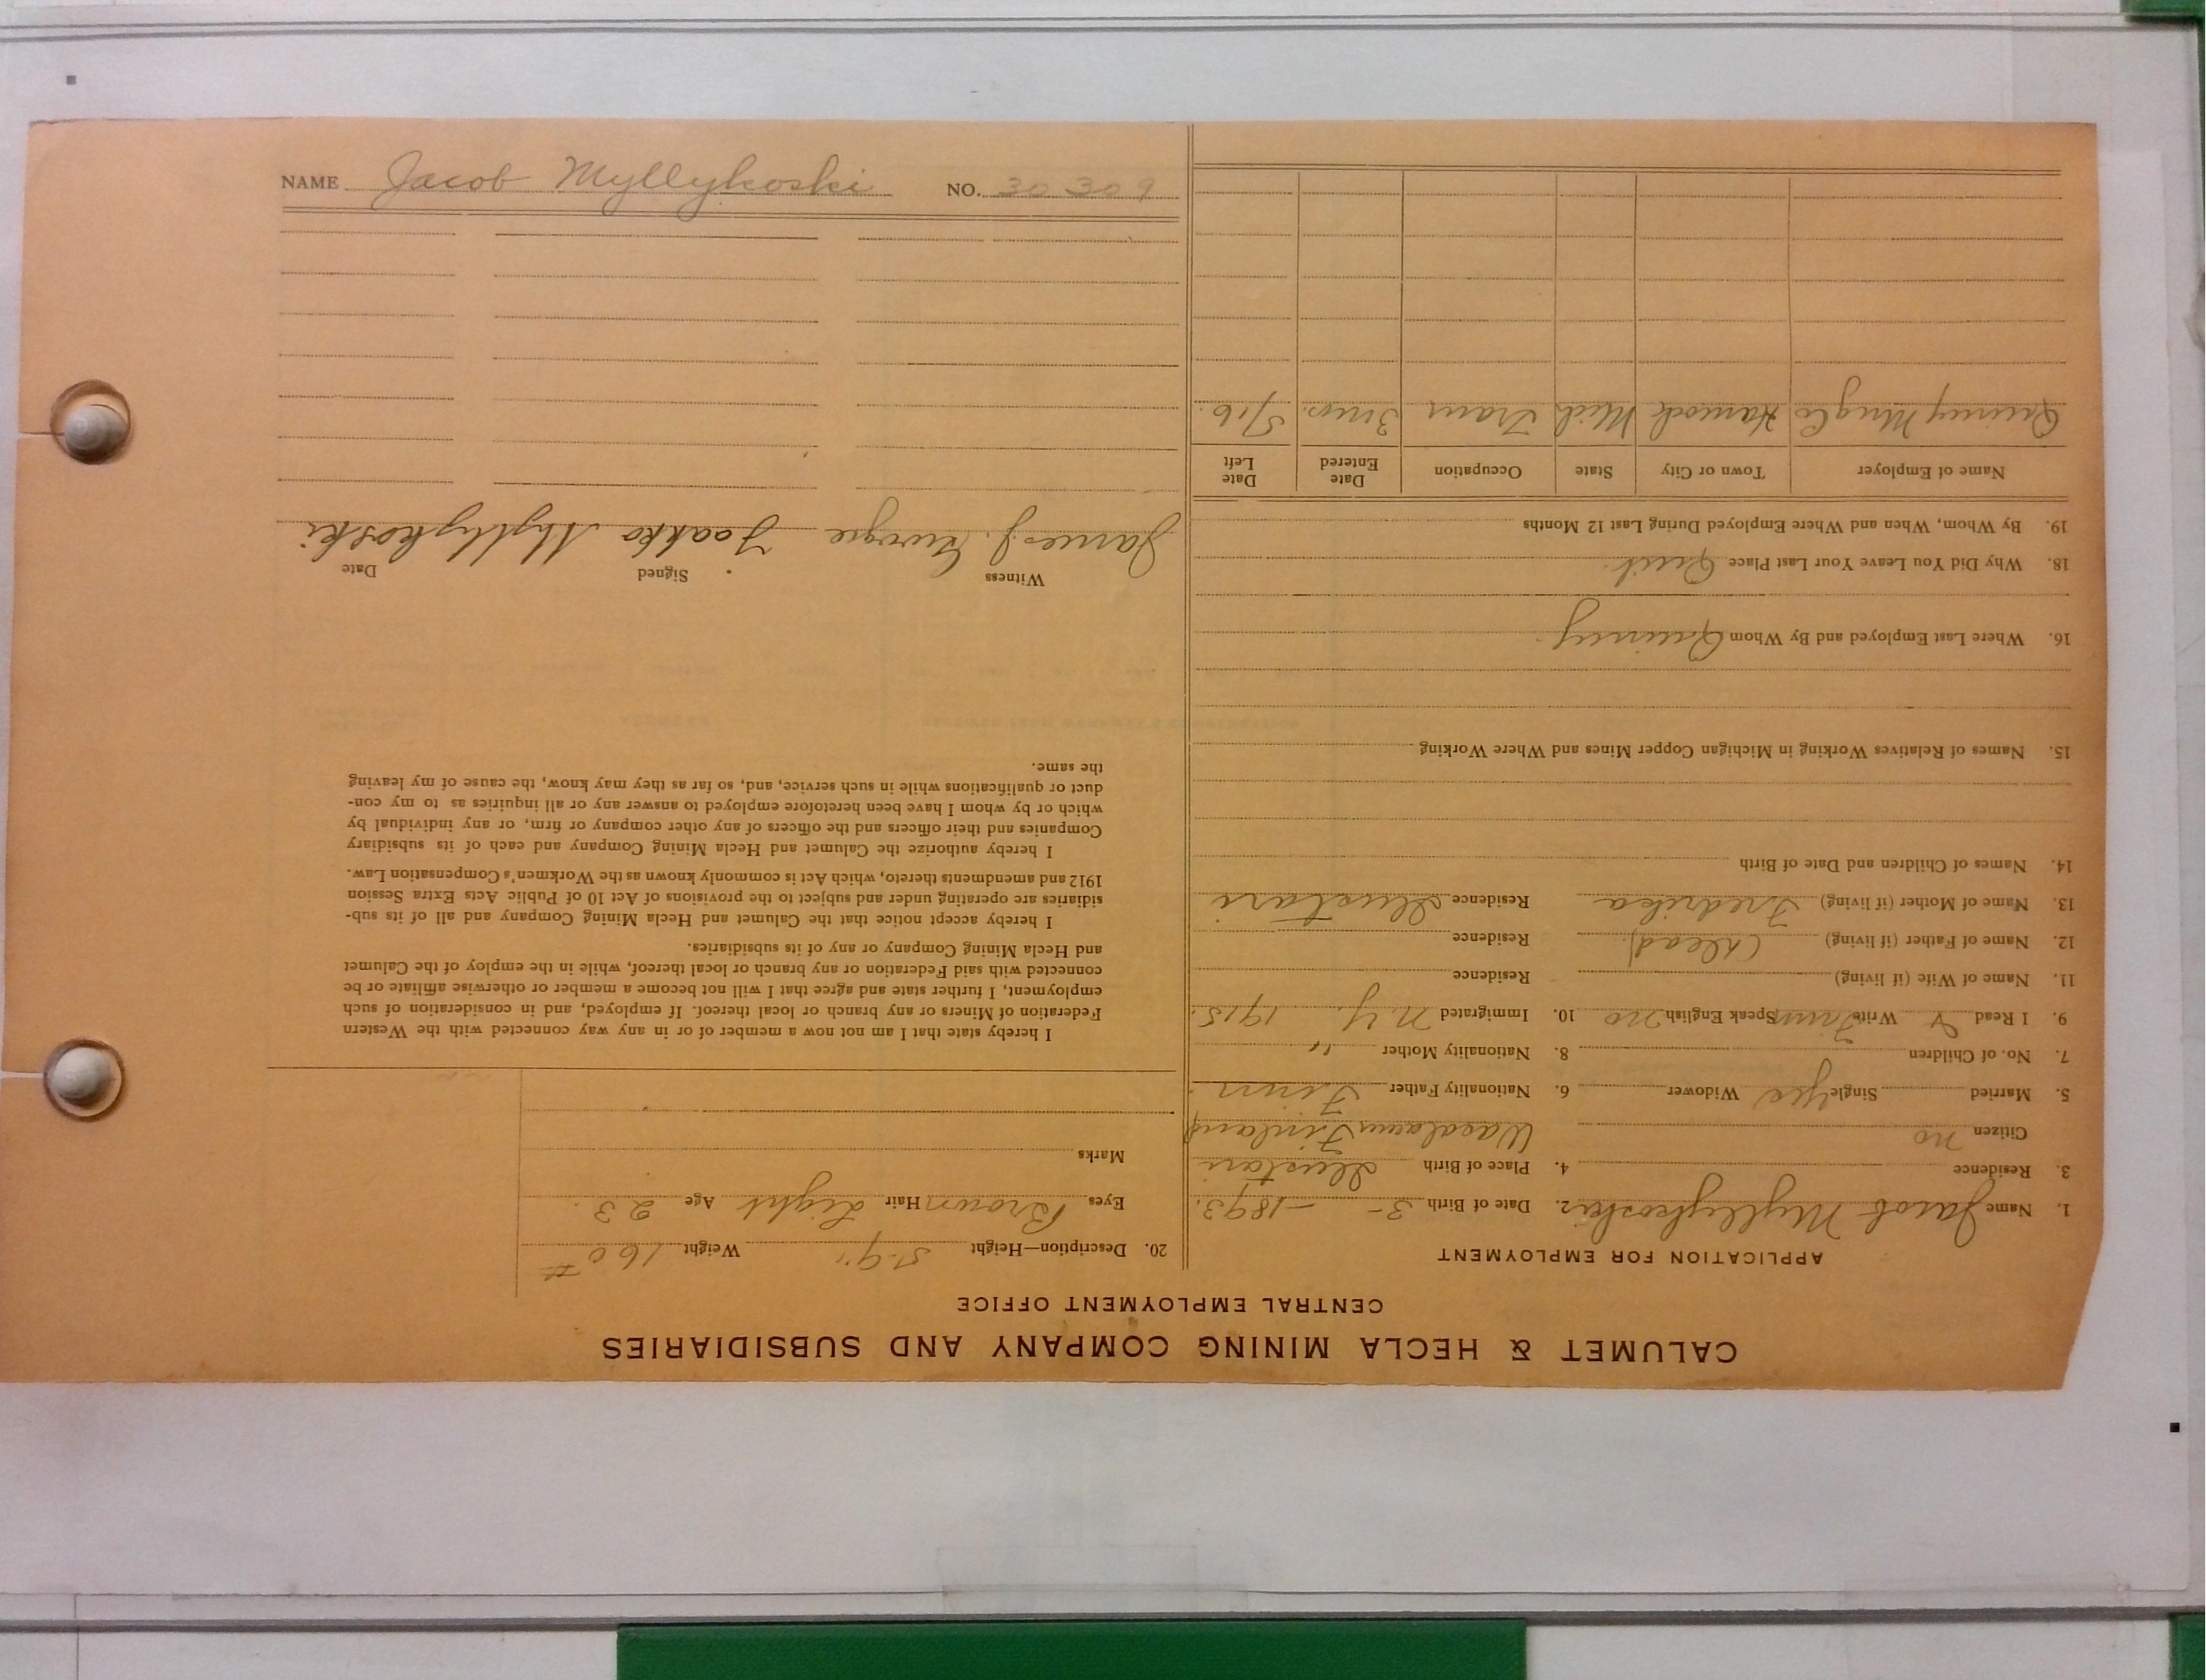 CALUMET & HECLA MINING COMPANY AND SUBSIDIARIES
CENTRAL EMPLOYMENT OFFICE
APPLICATION FOR EMPLOYMENT
1. Name Jacob Myllykoski 2. Date of Birth 3 - - 1893.
3. Residence 4. Place of Birth
Citizen no Finland
5. Married Single yes Widower 6. Nationality Father Finn
7. No. of Children 8. Nationality Mother "
9. I Read & Write Finn Speak English no 10. Immigrated N.Y. 1915.
11. Name of Wife (if living) Residence
12. Name of Father (if living) (dead) Residence
13. Name of Mother (if living) Fredrika Residence
14. Names of Children and Date of Birth
15. Names of Relatives Working in Michigan Copper Mines and Where Working
16. Where Last Employed and By Whom Quincy
18. Why Did You Leave Your Last Place Quit.
19. By Whom, When and Where Employed During Last 12 Months
Name of Employer Town or City State Occupation Date Entered Date Left
Quincy Mng Co Hancock Mich Tram 3 mos. 5/16.
20. Description—Height 5-9" Weight 160 #
Eyes Brown Hair Light Age 23.
Marks
I hereby state that I am not now a member of or in any way connected with the Western
Federation of Miners or any branch or local thereof. If employed, and in consideration of such
employment, I further state and agree that I will not become a member or otherwise affiliate or be
connected with said Federation or any branch or local thereof, while in the employ of the Calumet
and Hecla Mining Company or any of its subsidiaries.
I hereby accept notice that the Calumet and Hecla Mining Company and all of its sub-
sidiaries are operating under and subject to the provisions of Act 10 of Public Acts Extra Session
1912 and amendments thereto, which Act is commonly known as the Workmen's Compensation Law.
I hereby authorize the Calumet and Hecla Mining Company and each of its subsidiary
Companies and their officers and the officers of any other company or firm, or any individual by
which or by whom I have been heretofore employed to answer any or all inquiries as to my con-
duct or qualifications while in such service, and, so far as they may know, the cause of my leaving
the same.
Witness Signed Date
James J. Jaakko Myllykoski
NAME Jacob Myllykoski NO. 30309